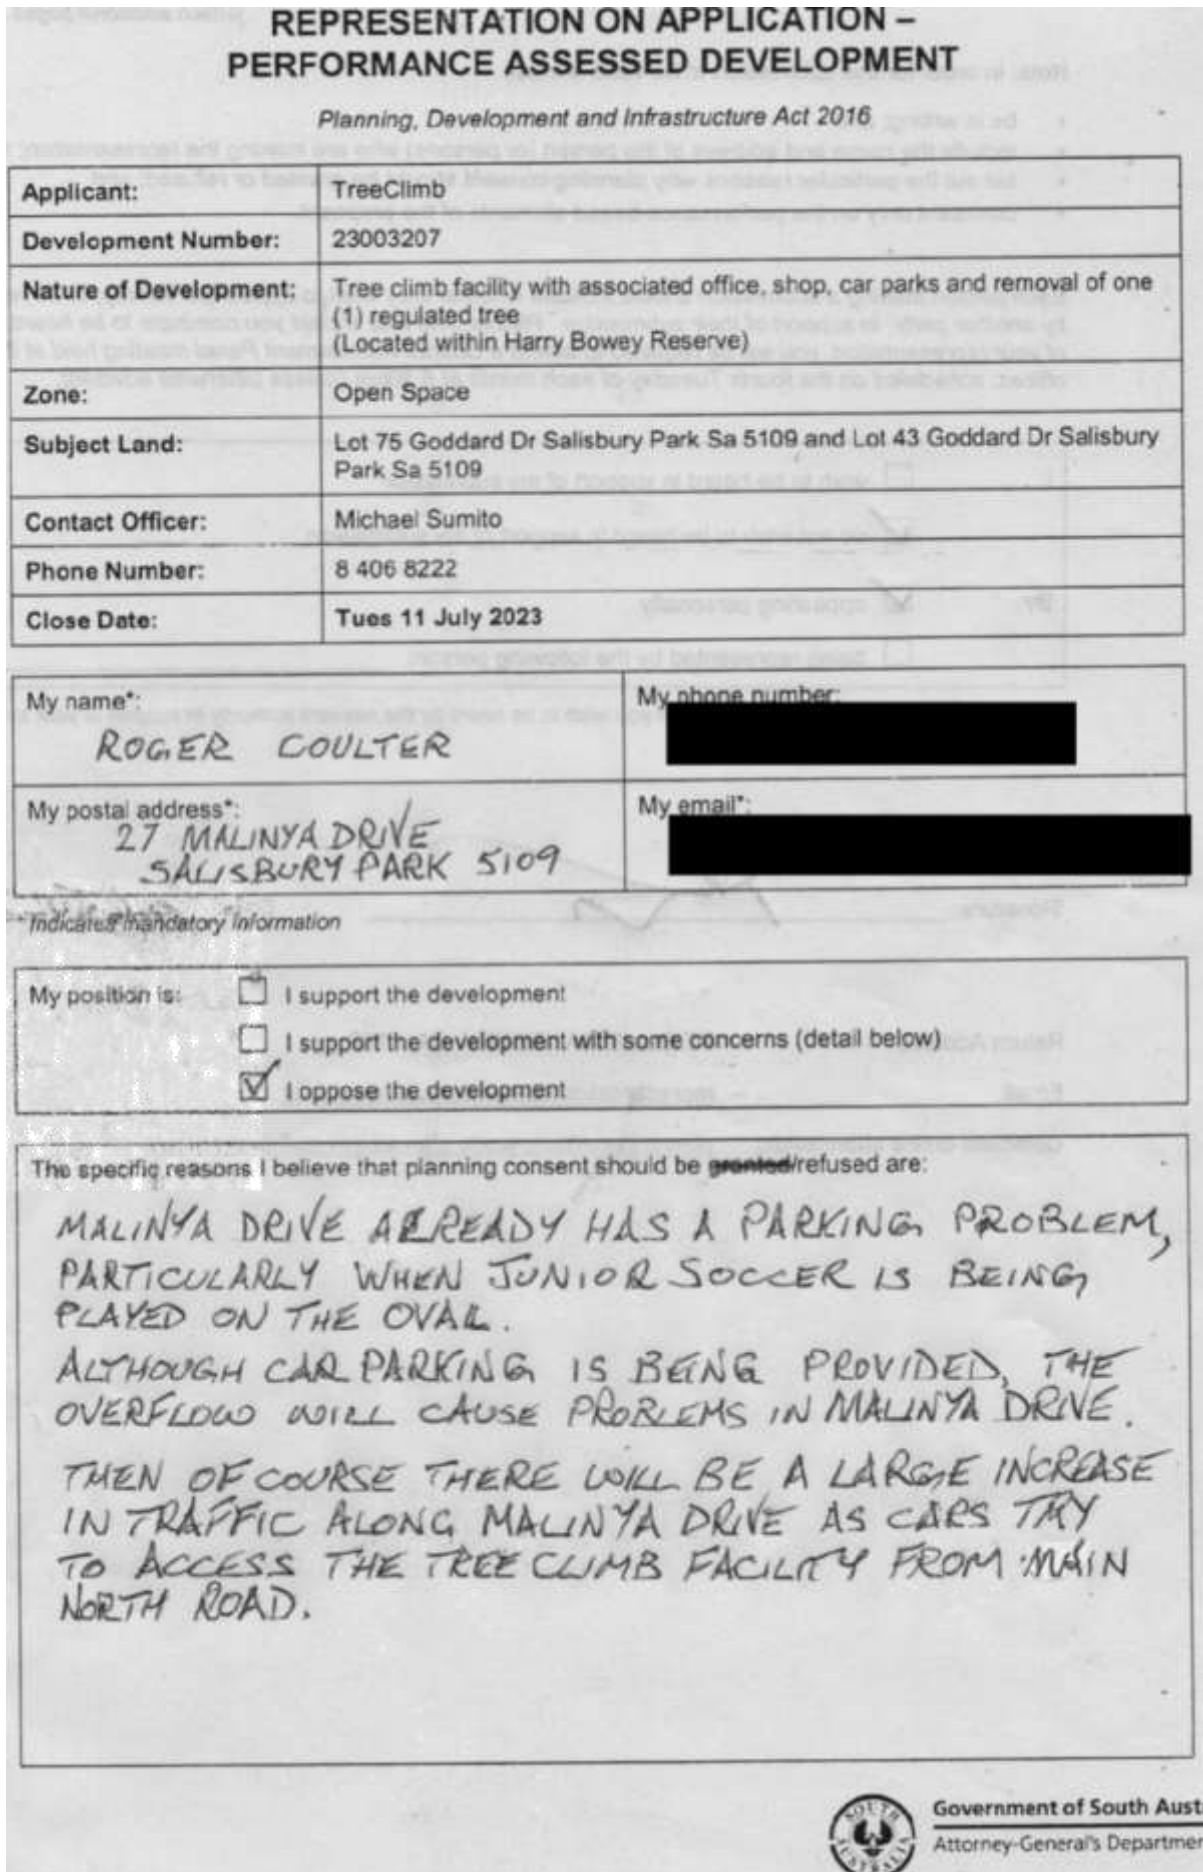 REPRESENTATION ON APPLICATION –
PERFORMANCE ASSESSED DEVELOPMENT
Planning, Development and Infrastructure Act 2016
Applicant: TreeClimb
Development Number: 23003207
Nature of Development: Tree climb facility with associated office, shop, car parks and removal of one
(1) regulated tree
(Located within Harry Bowey Reserve)
Zone: Open Space
Subject Land: Lot 75 Goddard Dr Salisbury Park Sa 5109 and Lot 43 Goddard Dr Salisbury
Park Sa 5109
Contact Officer: Michael Sumito
Phone Number: 8 406 8222
Close Date: Tues 11 July 2023
My name*: My phone number:
ROGER COULTER
My postal address*: My email*:
27 MALINYA DRIVE
SALISBURY PARK 5109
* Indicates mandatory information
My position is: I support the development
I support the development with some concerns (detail below)
I oppose the development
The specific reasons I believe that planning consent should be granted/refused are:
MALINYA DRIVE ALREADY HAS A PARKING PROBLEM,
PARTICULARLY WHEN JUNIOR SOCCER IS BEING
PLAYED ON THE OVAL.
ALTHOUGH CAR PARKING IS BEING PROVIDED, THE
OVERFLOW WILL CAUSE PROBLEMS IN MALINYA DRIVE.
THEN OF COURSE THERE WILL BE A LARGE INCREASE
IN TRAFFIC ALONG MALINYA DRIVE AS CARS TRY
TO ACCESS THE TREE CLIMB FACILITY FROM MAIN
NORTH ROAD.
SOUTH AUSTRALIA
Government of South Aust
Attorney-General's Departmen